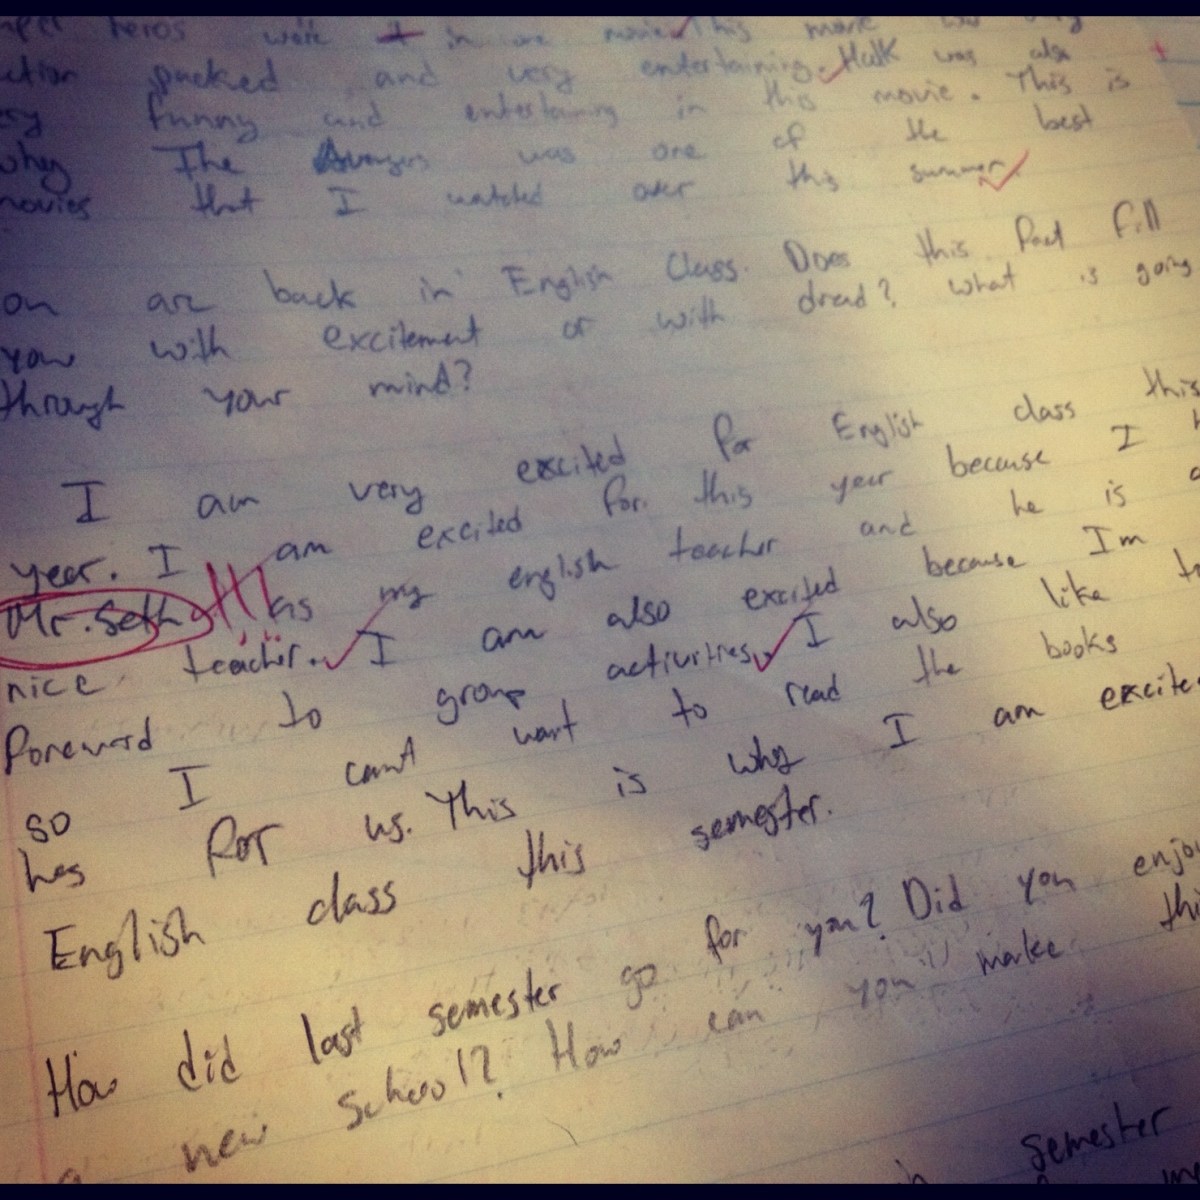 heros were in one movie. This movie was very
action packed and very entertaining. Hulk was also
very funny and entertaining in this movie. This is
why The Avengers was one of the best
movies that I watched over this summer.
you are back in English Class. Does this fact fill
you with excitement or with dread? What is going
through your mind?
I am very excited for English class this
year. I am excited for this year because I
Mr. Seth as my english teacher and he is a
nice teacher. I am also excited because Im
foreword to group activities. I also like to
so I cant wait to read the books
has for us. This is why I am excited
English class this semester.
How did last semester go for you? Did you enjoy
a new school? How can you make this
semester